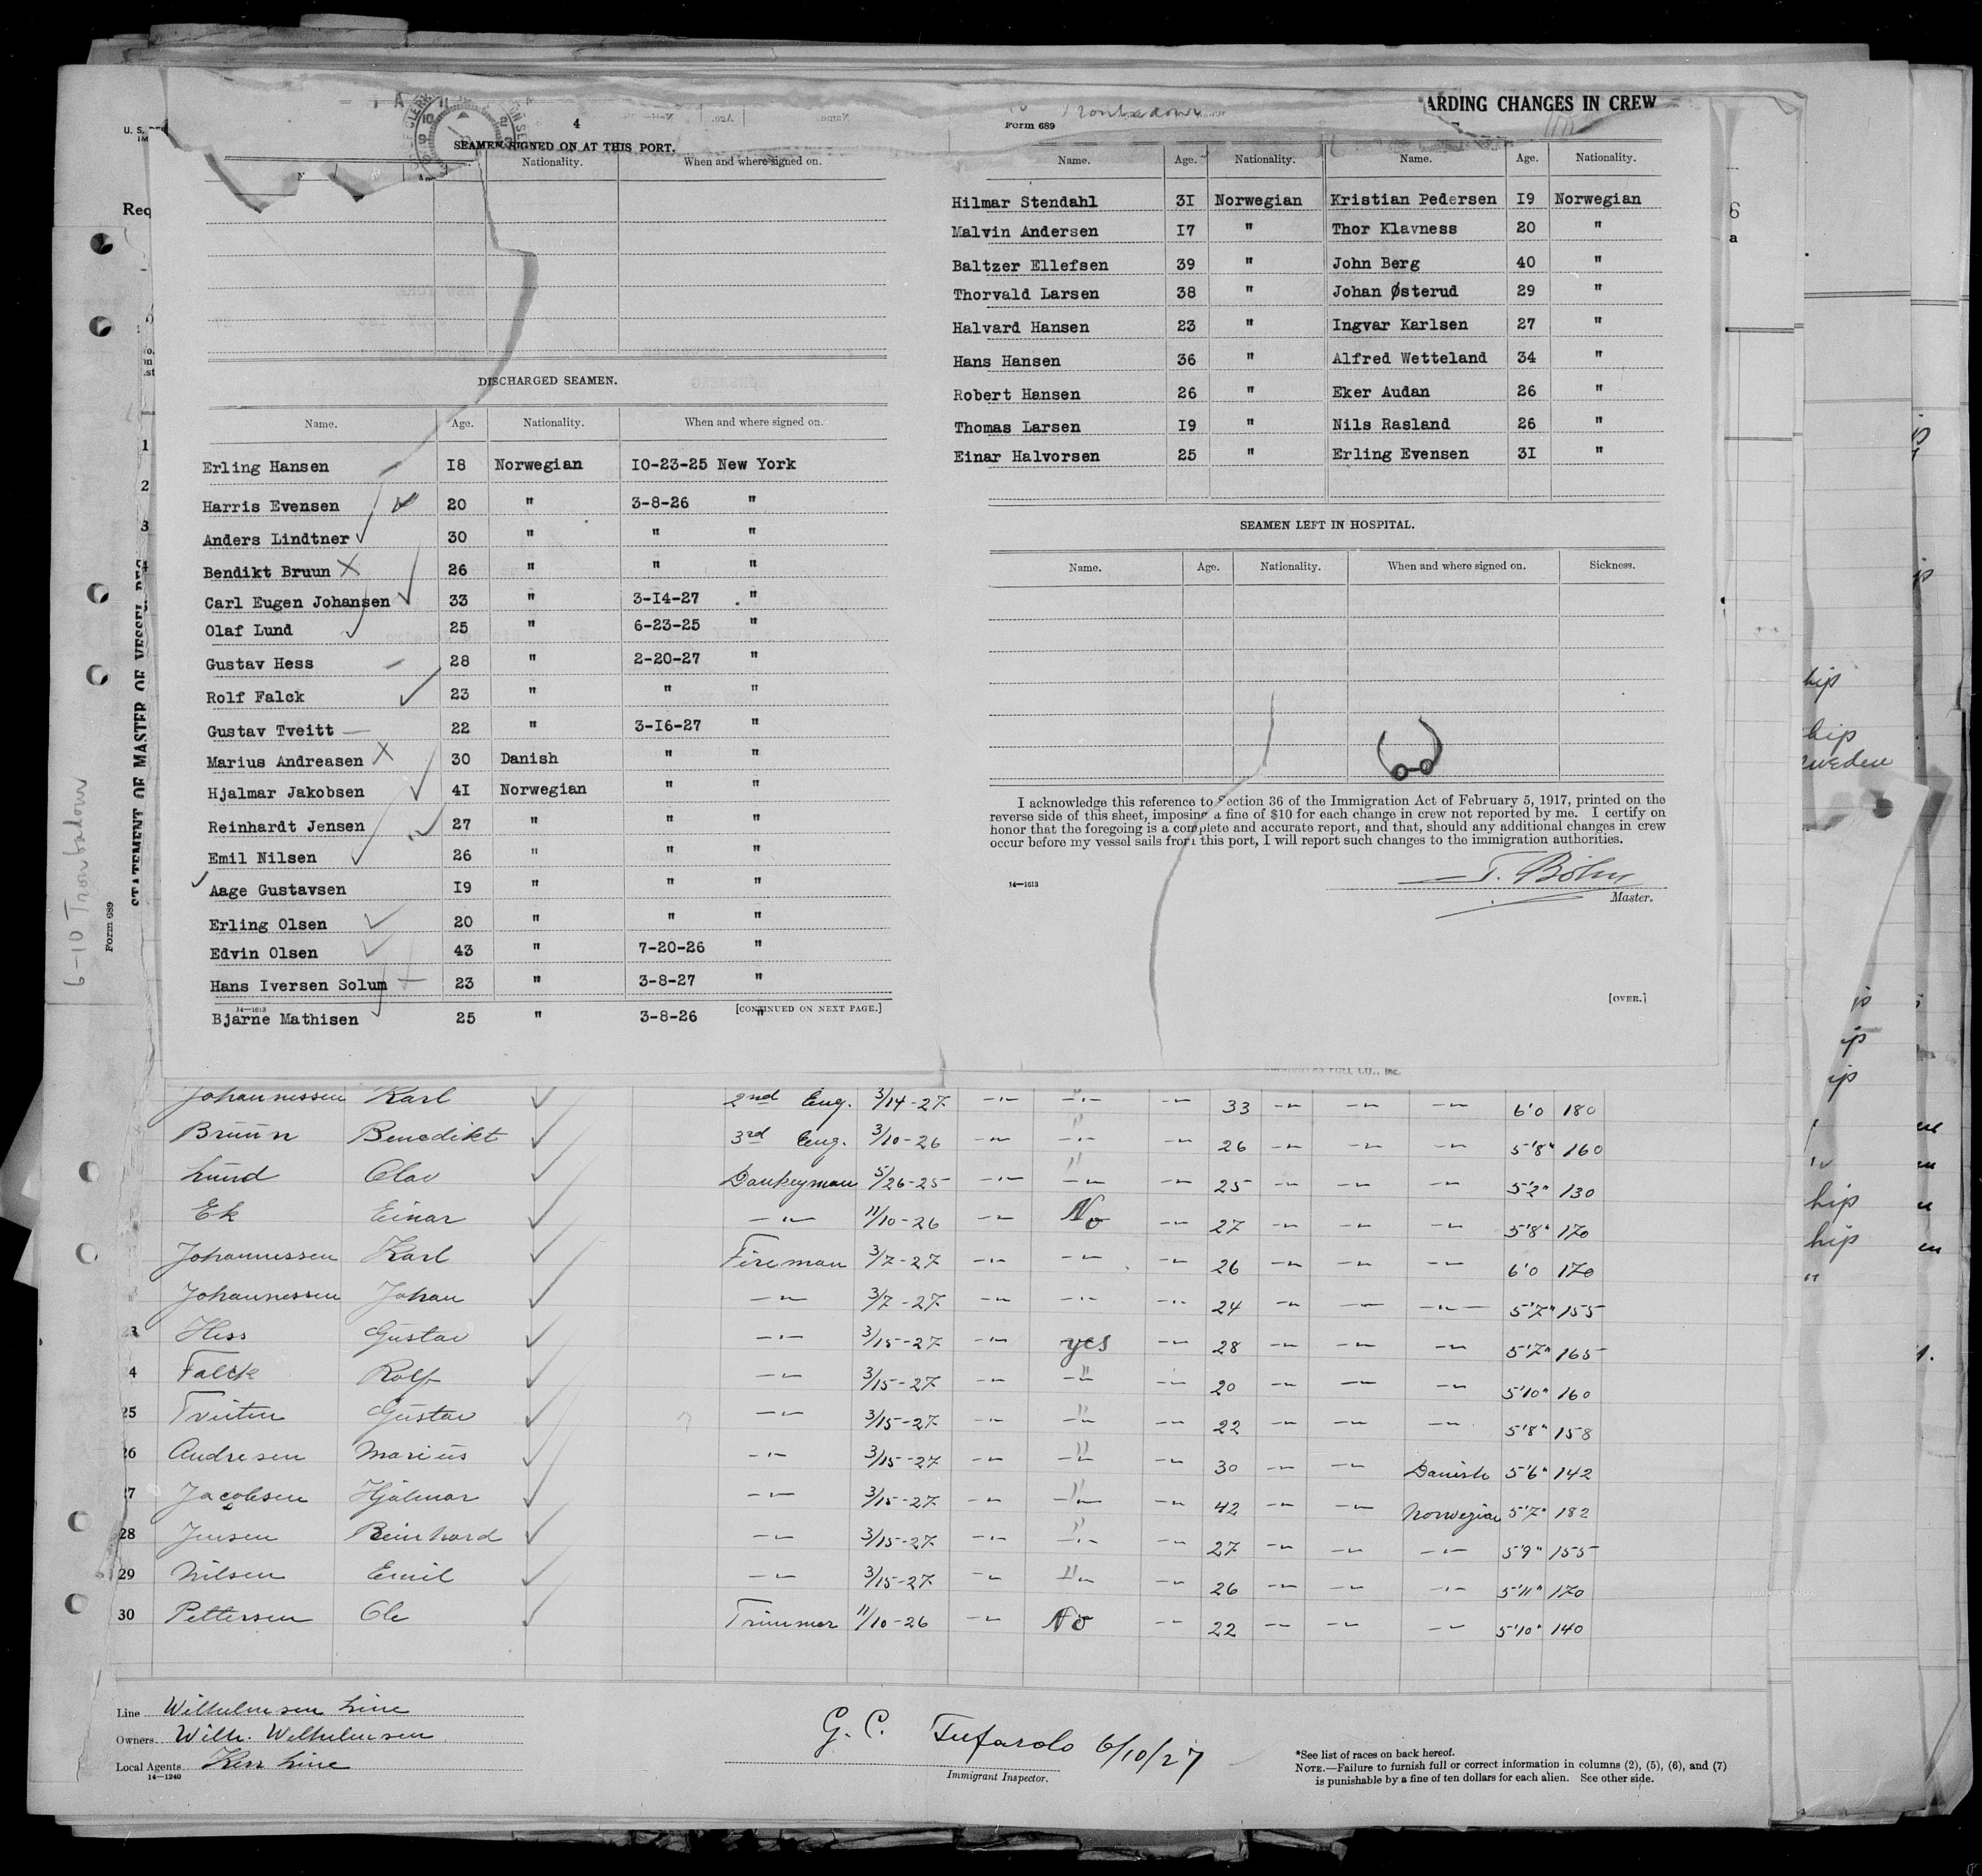 4
SEAMEN SIGNED ON AT THIS PORT.
Nationality. When and where signed on.
DISCHARGED SEAMEN.
Name. Age. Nationality. When and where signed on.
Erling Hansen I8 Norwegian I0-23-25 New York
Harris Evensen 20 " 3-8-26 "
Anders Lindtner 30 " " "
Bendikt Bruun 26 " " "
Carl Eugen Johansen 33 " 3-I4-27 "
Olaf Lund 25 " 6-23-25 "
Gustav Hess 28 " 2-20-27 "
Rolf Falck 23 " " "
Gustav Tveitt 22 " 3-I6-27 "
Marius Andreasen 30 Danish " "
Hjalmar Jakobsen 4I Norwegian " "
Reinhardt Jensen 27 " " "
Emil Nilsen 26 " " "
Aage Gustavsen I9 " " "
Erling Olsen 20 " " "
Edvin Olsen 43 " 7-20-26 "
Hans Iversen Solum 23 " 3-8-27 "
14—1613 [CONTINUED ON NEXT PAGE.]
Bjarne Mathisen 25 " 3-8-26 "
ARDING CHANGES IN CREW
Form 689 Troubadour
Name. Age. Nationality. Name. Age. Nationality.
Hilmar Stendahl 3I Norwegian Kristian Pedersen I9 Norwegian
Malvin Andersen I7 " Thor Klavness 20 "
Baltzer Ellefsen 39 " John Berg 40 "
Thorvald Larsen 38 " Johan Østerud 29 "
Halvard Hansen 23 " Ingvar Karlsen 27 "
Hans Hansen 36 " Alfred Wetteland 34 "
Robert Hansen 26 " Eker Audan 26 "
Thomas Larsen I9 " Nils Rasland 26 "
Einar Halvorsen 25 " Erling Evensen 3I "
SEAMEN LEFT IN HOSPITAL.
Name. Age. Nationality. When and where signed on. Sickness.
I acknowledge this reference to Section 36 of the Immigration Act of February 5, 1917, printed on the
reverse side of this sheet, imposing a fine of $10 for each change in crew not reported by me. I certify on
honor that the foregoing is a complete and accurate report, and that, should any additional changes in crew
occur before my vessel sails from this port, I will report such changes to the immigration authorities.
14—1613
Master.
[OVER.]
6-10 Troubadour
Form 689
STATEMENT OF MASTER OF VESSEL REG
Johannessen Karl 2nd Eng. 3/14-27 33 6'0 180
Bruun Benedikt 3rd Eng. 3/10-26 26 5'8" 160
Lund Olav Donkeyman 5/26-25 25 5'2" 130
Ek Einar 11/10-26 No 27 5'8" 170
Johannessen Karl Fireman 3/7-27 26 6'0 170
Johannessen Johan 3/7-27 24 5'7" 155
23 Hess Gustav 3/15-27 yes 28 5'7" 165
4 Falck Rolf 3/15-27 20 5'10" 160
25 Tveiten Gustav 3/15-27 22 5'8" 158
26 Andresen Marius 3/15-27 30 Danish 5'6" 142
27 Jacobsen Hjalmar 3/15-27 42 Norwegian 5'7" 182
28 Jensen Reinhard 3/15-27 27 5'9" 155
29 Nilsen Emil 3/15-27 26 5'11" 170
30 Pettersen Ole Trimmer 11/10-26 No 22 5'10" 140
Line Wilhelmsen Line
Owners Wilh. Wilhelmsen
Local Agents Kerr Line
14—1240
G. C. Tufarolo 6/10/27
Immigrant Inspector.
*See list of races on back hereof.
NOTE.—Failure to furnish full or correct information in columns (2), (5), (6), and (7)
is punishable by a fine of ten dollars for each alien. See other side.